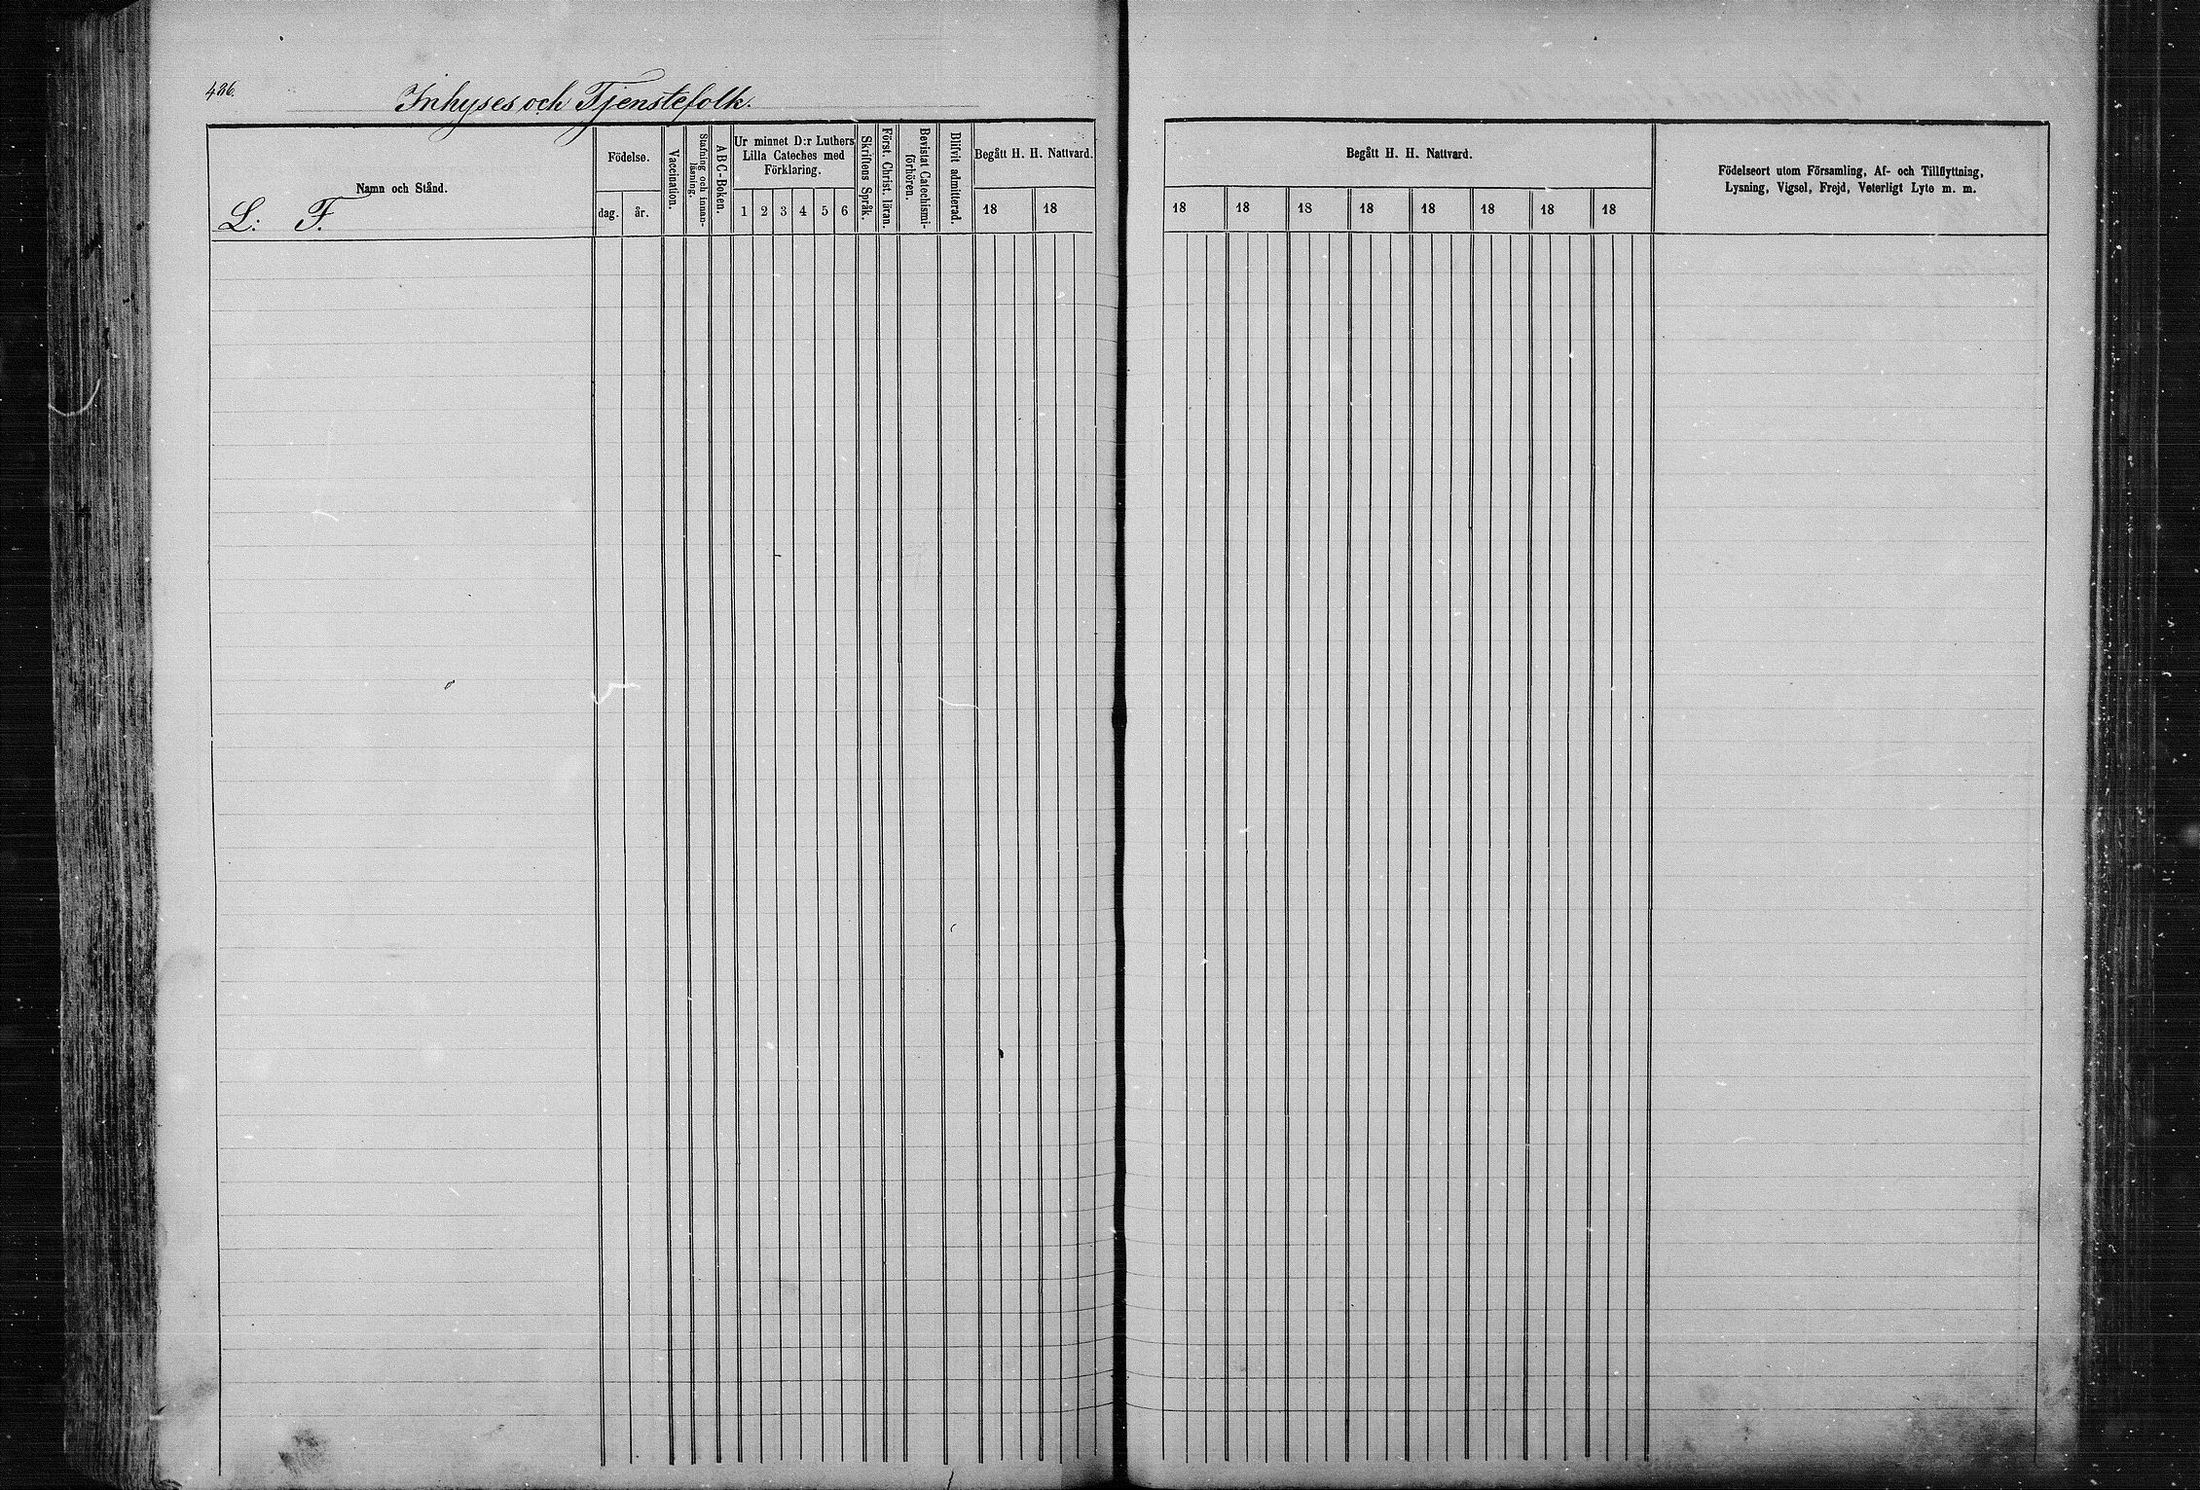 436.
Inhyses och Tjenstefolk.
Namn och Stånd.
L: F.
Födelse.
dag.
år.
Vaccination.
Stafning och innan-
läsning.
ABC-Boken.
Ur minnet D:r Luthers
Lilla Cateches med
Förklaring.
1 2 3 4 5 6
Skriftens Språk.
Först. Christ. läran.
Bevistat Catechismi-
förhören.
Blifvit admitterad.
Begått H. H. Nattvard.
18 18
Begått H. H. Nattvard.
18 18 18 18 18 18 18 18
Födelseort utom Församling, Af- och Tillflyttning,
Lysning, Vigsel, Frejd, Veterligt Lyte m. m.